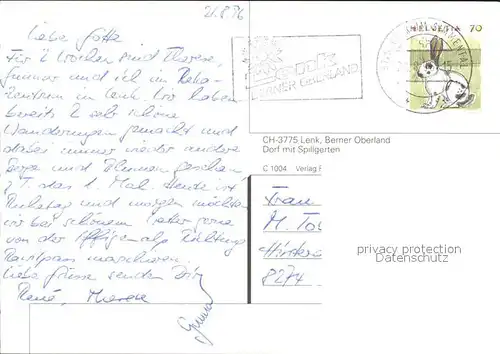 21.8.96
Liebe Gotte
Für 2 Wochen sind Therese,
Gunnar und ich im Reka-
Zentrum in Lenk. Wir haben
bereits 2 sehr schöne
Wanderungen gemacht und
dabei immer wieder andere
Berge und Blumen gesehen
z.T. das 1. Mal. Heute ist
Ruhetag und morgen möchten
wir bei schönem Wetter gerne
von der Iffigenalp Richtung
Rawilpass marschieren.
Liebe Grüsse senden Dir
René, Therese
Gunnar
BERNER OBERLAND
70
CH-3775 Lenk, Berner Oberland
Dorf mit Spillgerten
C 1004 Verlag
Frau
M.
8274
privacy protection
Datenschutz